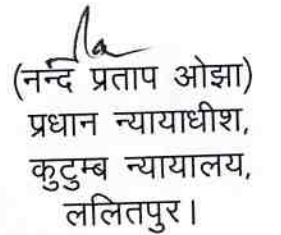 (नन्द प्रताप ओझा)
प्रधान न्यायाधीश,
कुटुम्ब न्यायालय,
ललितपुर।